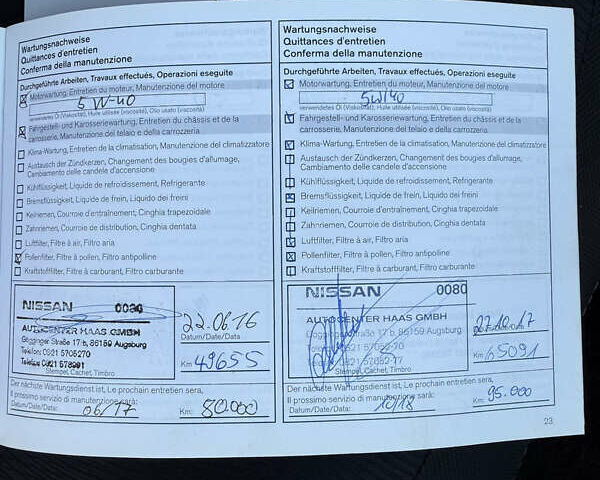 Wartungsnachweise
Quittances d'entretien
Conferma della manutenzione
Durchgeführte Arbeiten, Travaux effectués, Operazioni eseguite
Motorwartung, Entretien du moteur, Manutenzione del motore
5W-40
verwendetes Öl (Viskosität), Huile utilisée (viscosité), Olio usato (viscosità)
Fahrgestell- und Karosseriewartung, Entretien du châssis et de la
carrosserie, Manutenzione del telaio e della carrozzeria
Klima-Wartung, Entretien de la climatisation, Manutenzione del climatizzatore
Austausch der Zündkerzen, Changement des bougies d'allumage,
Cambiamento delle candele d'accensione
Kühlflüssigkeit, Liquide de refroidissement, Refrigerante
Bremsflüssigkeit, Liquide de frein, Liquido dei freini
Keilriemen, Courroie d'entraînement, Cinghia trapezoidale
Zahnriemen, Courroie de distribution, Cinghia dentata
Luftfilter, Filtre à air, Filtro aria
Pollenfilter, Filtre à pollen, Filtro antipolline
Kraftstofffilter, Filtre à carburant, Filtro carburante
NISSAN 0080
AUTOCENTER HAAS GMBH
Gögginger Straße 17 b, 86159 Augsburg
Telefon: 0821 5705270
Telefax 0821 578991
Stempel, Cachet, Timbro
22.06.16
Datum/Date/Data:
Km: 49655
Der nächste Wartungsdienst ist, Le prochain entretien sera,
Il prossimo servizio di manutenzione sarà:
Datum/Date/Data: 06/17 Km: 80.000
Wartungsnachweise
Quittances d'entretien
Conferma della manutenzione
Durchgeführte Arbeiten, Travaux effectués, Operazioni eseguite
Motorwartung, Entretien du moteur, Manutenzione del motore
5W40
verwendetes Öl (Viskosität), Huile utilisée (viscosité), Olio usato (viscosità)
Fahrgestell- und Karosseriewartung, Entretien du châssis et de la
carrosserie, Manutenzione del telaio e della carrozzeria
Klima-Wartung, Entretien de la climatisation, Manutenzione del climatizzatore
Austausch der Zündkerzen, Changement des bougies d'allumage,
Cambiamento delle candele d'accensione
Kühlflüssigkeit, Liquide de refroidissement, Refrigerante
Bremsflüssigkeit, Liquide de frein, Liquido dei freini
Keilriemen, Courroie d'entraînement, Cinghia trapezoidale
Zahnriemen, Courroie de distribution, Cinghia dentata
Luftfilter, Filtre à air, Filtro aria
Pollenfilter, Filtre à pollen, Filtro antipolline
Kraftstofffilter, Filtre à carburant, Filtro carburante
NISSAN 0080
AUTOCENTER HAAS GMBH
Straße 17 b, 86159 Augsburg
Stempel, Cachet, Timbro
27.10.17
Km: 65091
Der nächste Wartungsdienst ist, Le prochain entretien sera,
Il prossimo servizio di manutenzione sarà:
Datum/Date/Data: 10/18 Km: 95.000
23